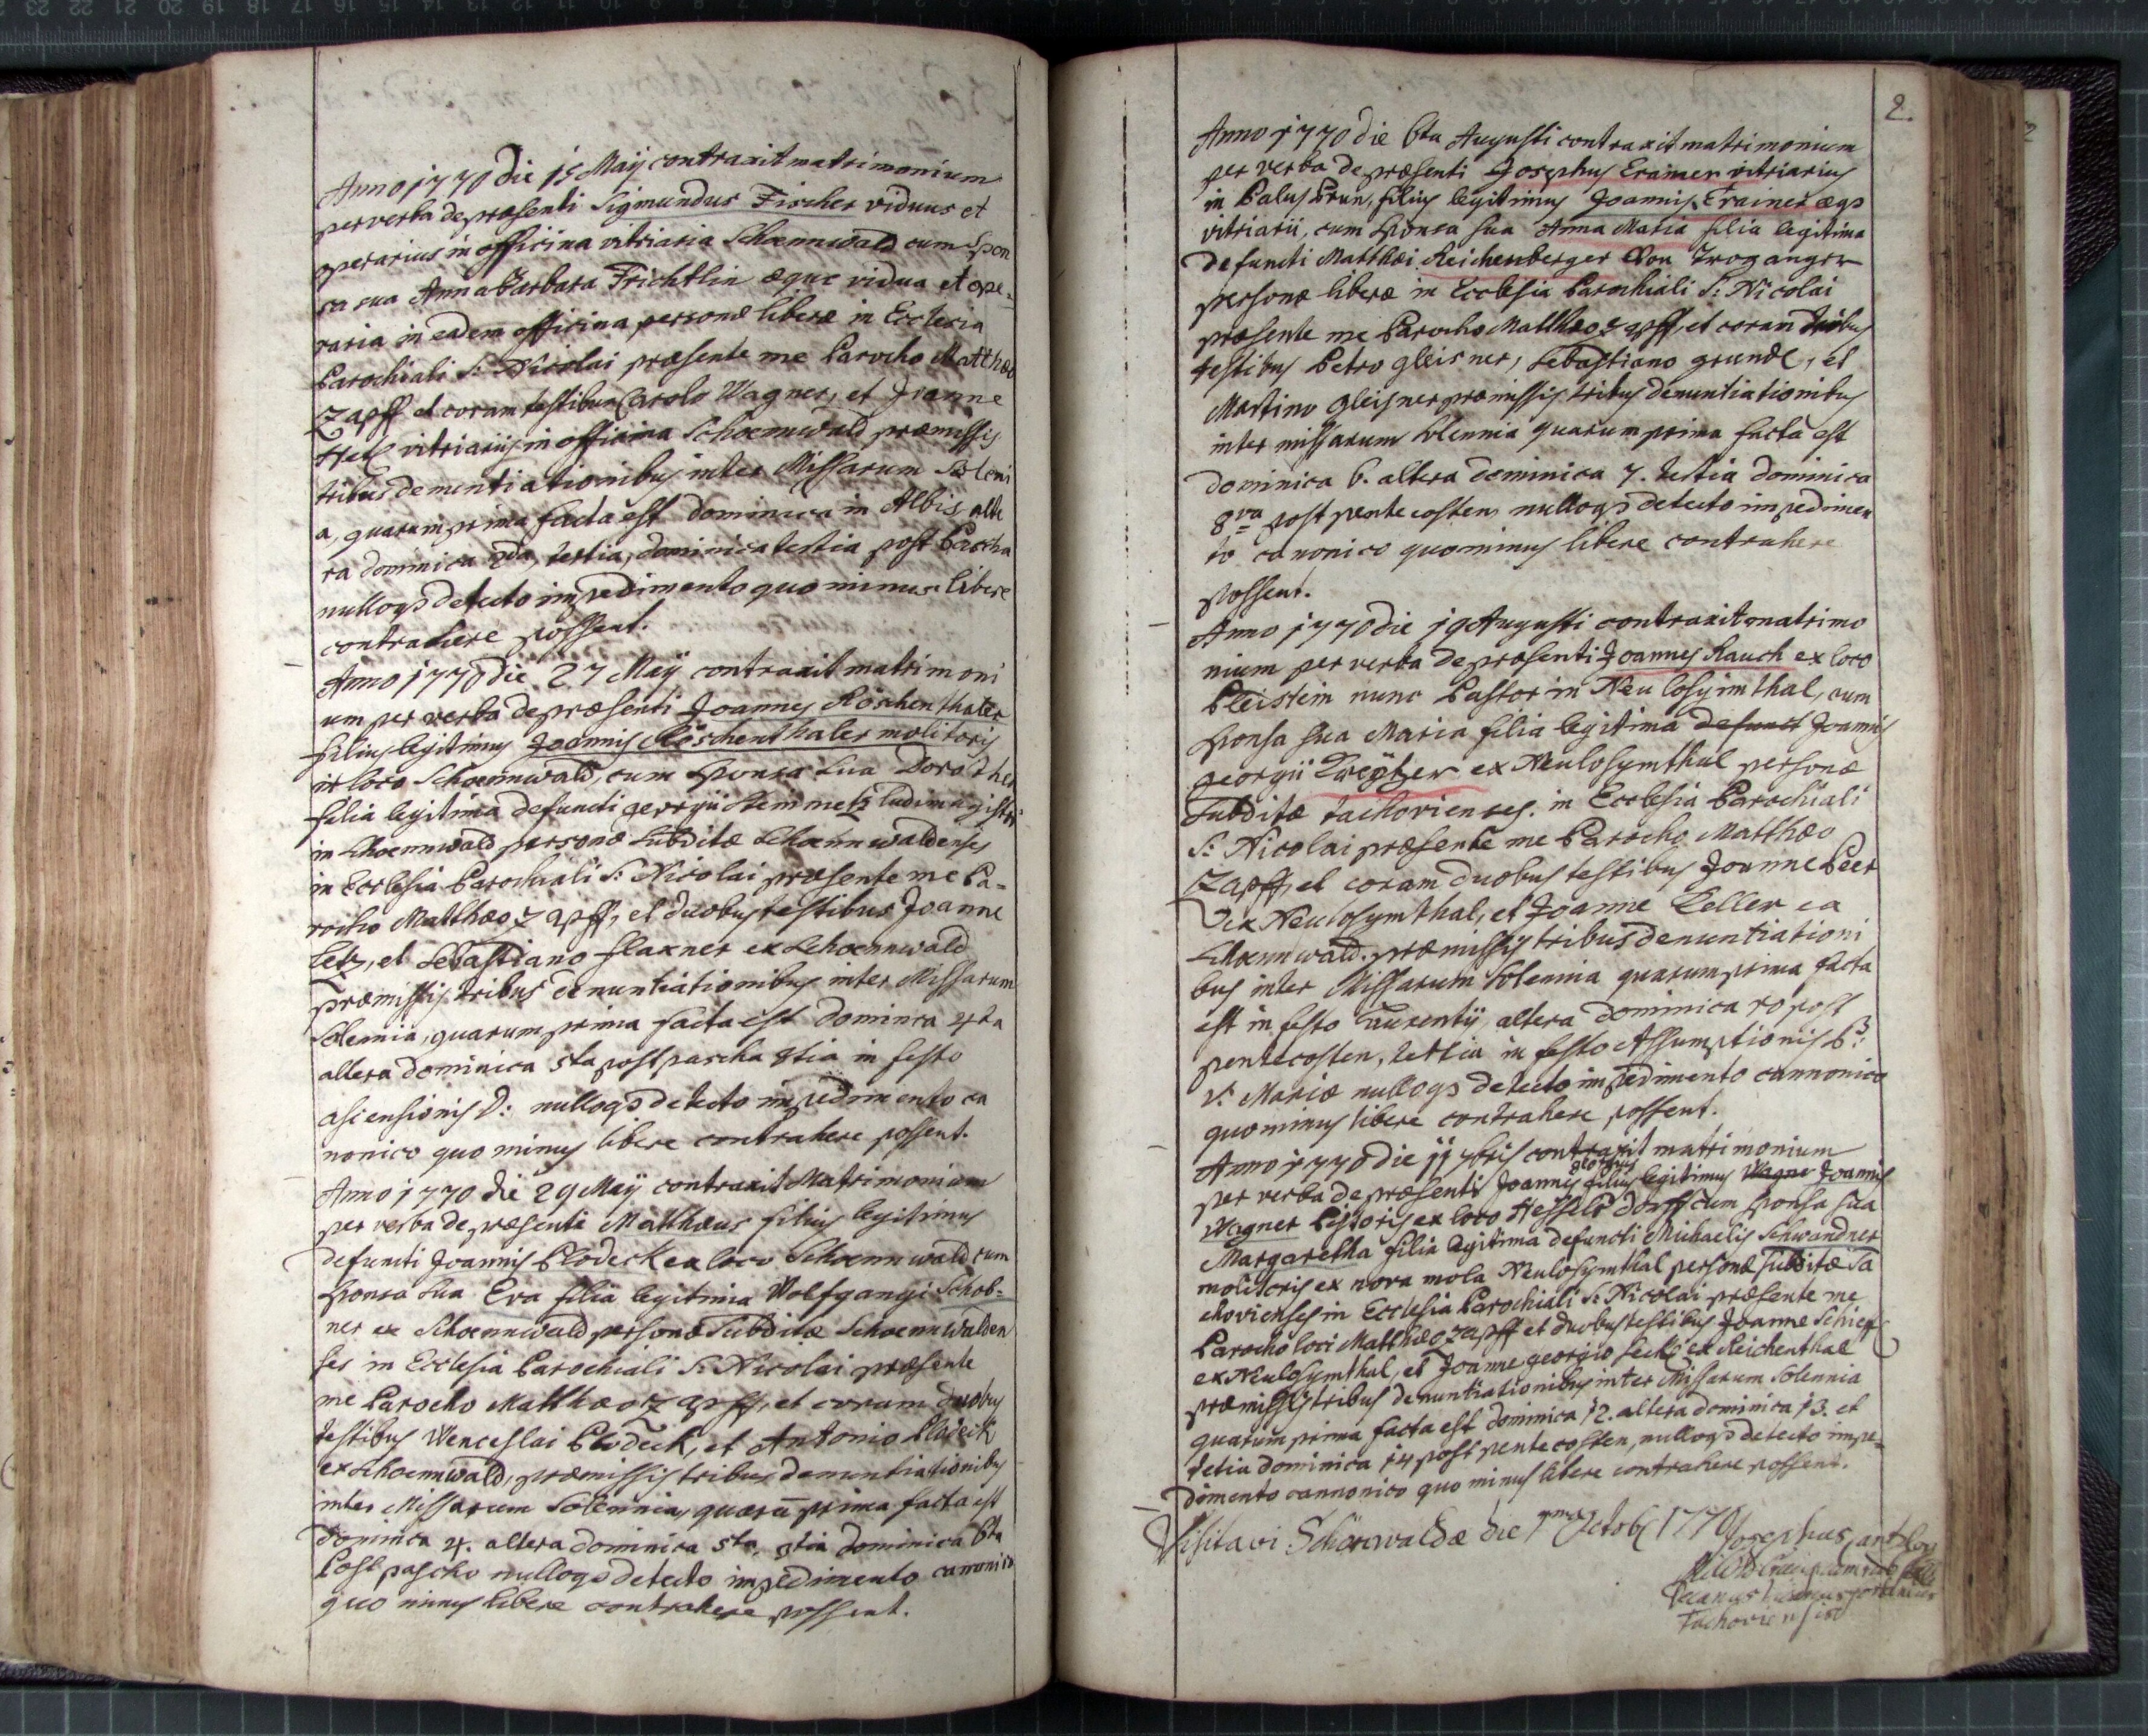 Anno 1770 die 15 Maÿ contraxit matrimonium
per verba de præsenti Sigmundus Fischer viduus et
operarius in officina vitriaria Schoennwald cum Spon
sa sua Anna Barbara Frichtlin æque vidua et ope=
raria in eadem officina personæ liberæ in Ecclesia
Parochiali S: Nicolai præsente me Parocho Matthæo
Zapff et coram testibus Carolo Wagner, et Joanne
vitriariis in officina Schoennwald præmissis
tribus denuntiationibus inter Missarum Soleni
a, quarum prima facta est dominica in Albis alte
ra dominica 2da, tertia, dominica tertia post Pascha
nulloqs detecto impedimento quo minus libere
contrahere possent.
Anno 1770 die 27 Maÿ contraxit matrimoni
um per verba de præsenti Joannes Röschenthaler
filius legitimus Joannis Röschenthaler molitoris
in loco Schoennwald, cum sponsa sua Dorothea
filia legitima defuncti georgii Steinmetz ludimagistri
in Schoennwald personæ subditæ Schoennwaldenses
in Ecclesia Parochiali S: Nicolai præsente me Pa=
rocho Matthæo Zapff, et duobus testibus Joanne
et Sebastiano flaxner ex Schoennwald
præmissis tribus denuntiationibus inter Missarum
Solemnia, quarum prima facta est Dominica 4ta
altera dominica 5ta post pascha 3tia in festo
ascensionis D: nulloqs detecto impedimento ca
nonico quo minus libere contrahere possent.
Anno 1770 die 29 Maÿ contraxit Matrimonium
per verba de præsenti Matthæus filius legitimus
defuncti Joannis Plodeck ex loco Schoennwald cum
sponsa sua Eva filia legitima Wolfgangi Schob=
ner ex Schoennwald personæ Subditæ Schoennwalden
ses in Ecclesia Parochiali S: Nicolai præsente
me Parocho Matthæo Zapff, et coram duobus
testibus Wenceslai Plodeck, et Antonio Plodeck
ex Schoennwald, præmissis tribus denuntiationibus
inter Missarum Solennia, quarū prima facta est
Dominica 4. altera dominica 5ta, 3tia dominica 6ta
Post pascha nulloqs detecto impedimento canonico
quo minus libere contrahere possent.
2.
Anno 1770 die 6ta Augusti contraxit matrimonium
per verba de præsenti Josephus Erainer vitriarius
in Palus Prun, filius legitimus Joannis Trainer æqs
vitriarii, cum sponsa sua Anna Maria filia legitima
defuncti Matthæi Reichenberger Von Troganger
personæ liberæ in Ecclesia Parochiali S: Nicolai
præsente me Parocho Matthæo Zapff, et coram tribus
testibus Petro gleisner, Sebastiano grundl, et
Martino gleisner præmissis tribus denuntiationibus
inter missarum solennia quarum prima facta est
dominica 6. altera dominica 7. tertia dominica
8va post pentecosten nulloqs detecto impedimen
to canonico quominus libere contrahere
possent.
Anno 1770 die 19 Augusti contraxit matrimo
nium per verba de præsenti Joannes Rauch ex loco
Pleistein nunc Pastor in Neu losyimthal, cum
sponsa sua Maria filia legitima defunct Joannis
georgii ex Neulosymthal personæ
Subditæ tachovienses. in Ecclesia Parochiali
S: Nicolai præsente me Parocho Matthæo
Zapff, et coram duobus testibus Joanne Peer
ex Neulosymthal, et Joanne Zeller ex
Schoennwald. præmissis tribus denuntiationi
bus inter Missarum Solennia quarum prima facta
est in festo Laurentÿ, altera Dominica 10 post
pentecosten, tertia in festo Assumptionis B:
V: Mariæ nulloqs detecto impedimento cannonico
quominus libere contrahere possent.
Anno 1770 die 11 7bris contraxit matrimonium
georgius
per verba de præsenti Joannis filius legitimus Wagner Joannis
Wagner Pistoris ex loco Hesselsdorff cum sponsa sua
Margaretha filia legitima defuncti Michaelis Schwandner
molitoris ex nova mola Neulosymthal personæ subditæ Ta
chovienses in Ecclesia Parochiali S: Nicolai præsente me
Parocho loci Matthæo Zapff et duobus testibus Joanne
ex Neulosymthal, et Joanne georgio ex Reichenthal
præmissis tribus denuntiationibus inter Missarum Solennia
quarum prima facta est dominica 12. altera dominica 13. et
tertia dominica 14 post pentecosten, nulloqs detecto impe=
dimento cannonico quo minus libere contrahere possent.
Visitavi Schönwaldæ die Octobr 1770 Josephus
Decanus
Tachoviensis